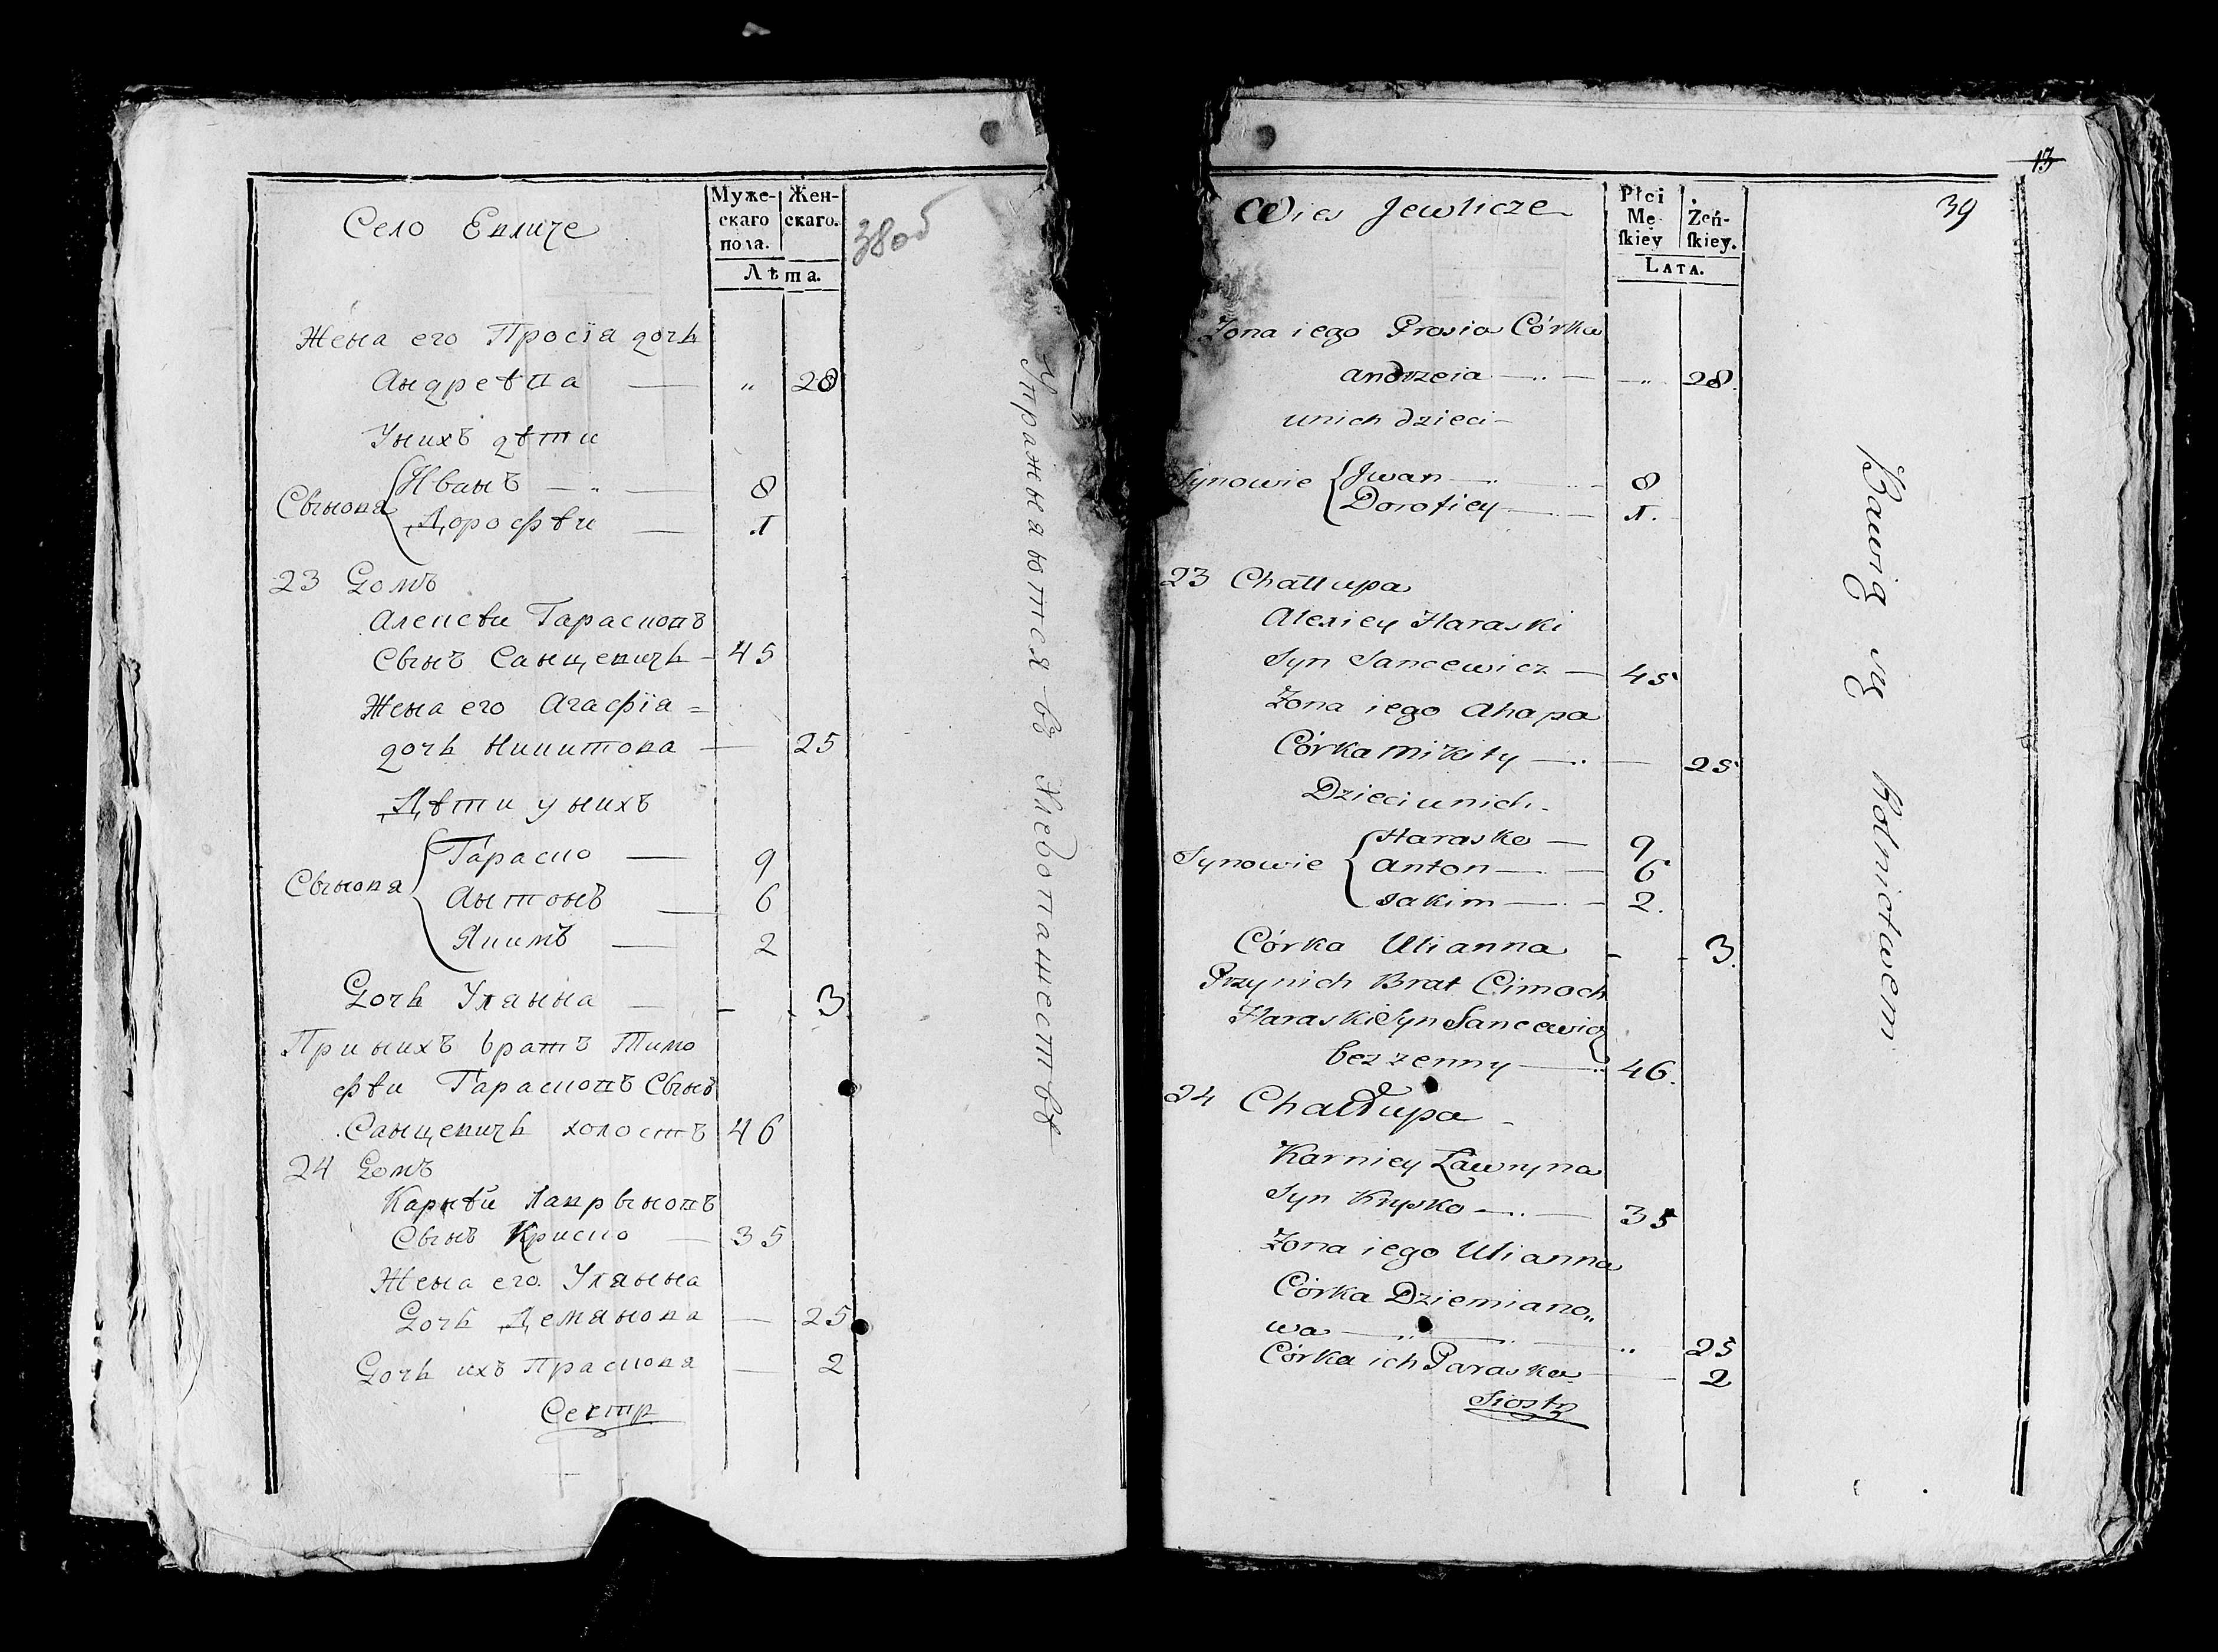 Село Евличе
Муже-
скаго
пола.
Жен-
скаго.
Лѣта.
38об
Жена его Просія дочь
Андреѣва — „ 28
У нихъ дѣти
Сыновя { Иванъ — 8
Дорофѣи — 1
23 Домъ
Алексѣи Тарасковъ
Сынъ Санцевичь 45
Жена его Агафія =
дочь Никитова — 25
Дѣти у нихъ
Сыновя { Тараско — 9
Антонъ — 6
Якимъ — 2
Дочь Уляина — 3
При нихъ братъ Тимо
фѣи Тарасковъ Сынъ
Санцевичь холостъ 46
24 Домъ
Карнѣй Лаврыновъ
Сынъ Криско — 35
Жена его Уляина
Дочь Демянова — 25
Дочь ихъ Прасковя — 2
Сестр
Упражняются въ Хлебопашествѣ
13
39
Wies Jewlicze
Płci
Mę-
ſkiey
Żeń-
ſkiey.
LATA.
Zona iego Prosia Córka
Andrzeia — „ 28.
u nich dzieci
Synowie { Jwan — 8
Dorofiey — 1.
23 Chałłupa
Alexiey Haraski
Syn Sancewicz — 45
Zona iego Ahapa
Córka Mikity — 25
Dzieci u nich
Synowie { Harasko — 9
Anton — 6
Jakim — 2.
Córka Ulianna — 3.
Przy nich Brat Cimoch
Haraski Syn Sancewicz
bezzenny — 46.
24 Chałłupa
Karniey Ławryna
Syn Krysko — 35
Zona iego Ulianna
Córka Dziemiano„
wa — „ 25
Córka ich Paraska — 2
Siostr
Bawią się Rolnictwem